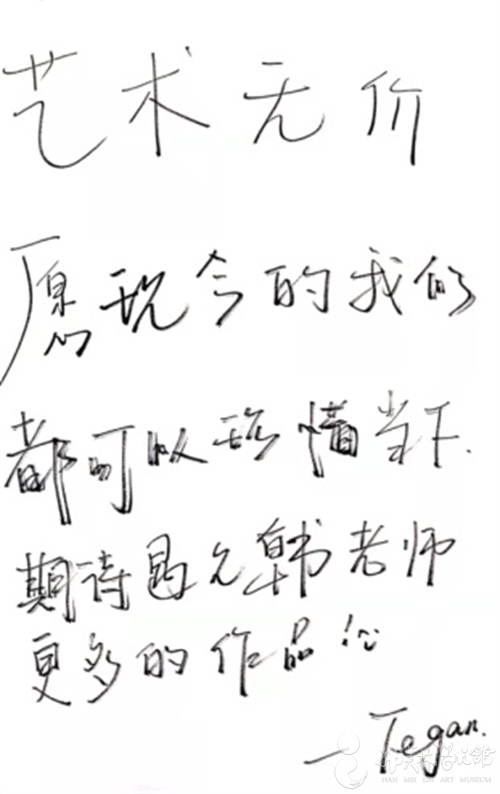 艺术无价
愿现今的我们
都可以珍惜当下.
期待遇见韩老师
更多的作品!
—Tegan.
HAN MEI LIN ART MUSEUM